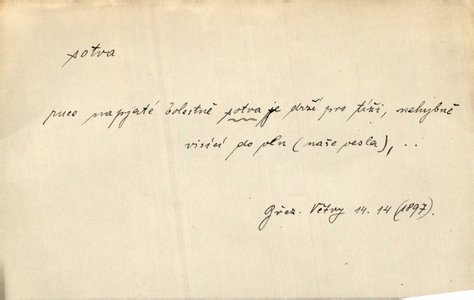 potva
ruce napjaté bolestně potva je drží pro tíži, nehybně
visící do vln (naše vesla), ..
Břez. Větry 14. 14 (1897).